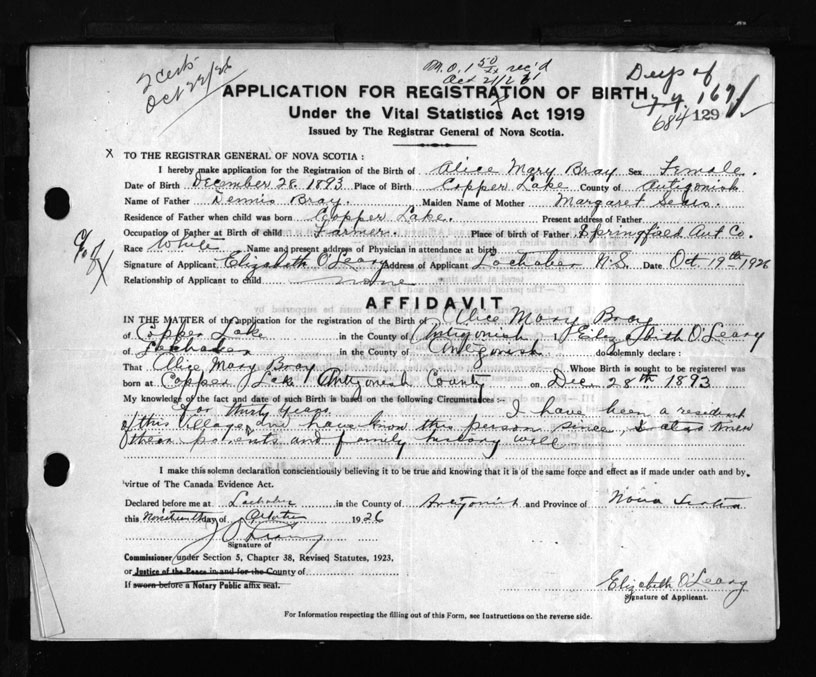 2 certs
Oct 22/26
M.O. 1 50/xx rec'd
Oct 21/26
Dup of
684 129
APPLICATION FOR REGISTRATION OF BIRTH
Under the Vital Statistics Act 1919
Issued by The Registrar General of Nova Scotia.
X TO THE REGISTRAR GENERAL OF NOVA SCOTIA :
I hereby make application for the Registration of the Birth of Alice Mary Bray Sex Female.
Date of Birth December 28. 1893 Place of Birth Copper Lake County of Antigonish
Name of Father Dennis Bray. Maiden Name of Mother Margaret Sears.
Residence of Father when child was born Copper Lake. Present address of Father
Occupation of Father at Birth of child Farmer. Place of birth of Father Springfield Ant Co.
Race White Name and present address of Physician in attendance at birth
Signature of Applicant Elizabeth O'Leary Address of Applicant Lochaber N.S. Date Oct 19th 1926
Relationship of Applicant to child none
AFFIDAVIT
IN THE MATTER of the application for the registration of the Birth of Alice Mary Bray
of Copper Lake in the County of Antigonish I, Elizabeth O'Leary
of Lochaber in the County of Antigonish do solemnly declare :
That Alice Mary Bray Whose Birth is sought to be registered was
born at Copper Lake Antigonish County on Dec. 28th 1893
My knowledge of the fact and date of such Birth is based on the following Circumstances :—
for thirty years I have been a resident
of this village and have know this person since,
these parents and family history well.
I make this solemn declaration conscientiously believing it to be true and knowing that it is of the same force and effect as if made under oath and by
virtue of The Canada Evidence Act.
Declared before me at Lochaber in the County of Antigonish and Province of Nova Scotia
this Nineteenth day of October 1926
Signature of
Commissioner under Section 5, Chapter 38, Revised Statutes, 1923,
or Justice of the Peace in and for the County of
If sworn before a Notary Public affix seal.
Elizabeth O'Leary
Signature of Applicant.
For Information respecting the filling out of this Form, see Instructions on the reverse side.